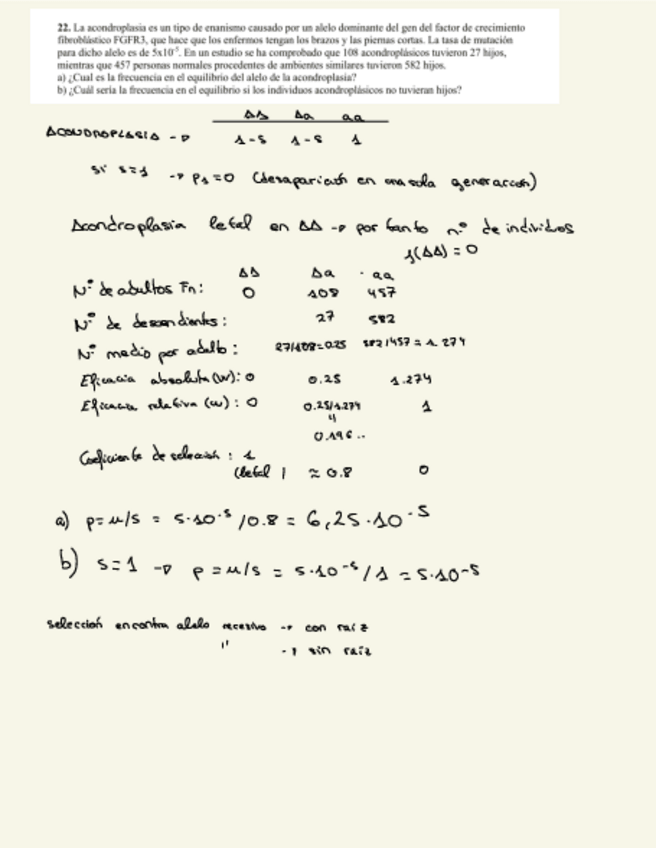 22. La acondroplasia es un tipo de enanismo causado por un alelo dominante del gen del factor de crecimiento
fibroblástico FGFR3, que hace que los enfermos tengan los brazos y las piernas cortas. La tasa de mutación
para dicho alelo es de 5x10⁻⁵. En un estudio se ha comprobado que 108 acondroplásicos tuvieron 27 hijos,
mientras que 457 personas normales procedentes de ambientes similares tuvieron 582 hijos.
a) ¿Cual es la frecuencia en el equilibrio del alelo de la acondroplasia?
b) ¿Cuál sería la frecuencia en el equilibrio si los individuos acondroplásicos no tuvieran hijos?
AA Aa aa
ACONDROPLASIA → 1-s 1-s 1
si s=1 → p₁=0 (desaparición en una sola generación)
Acondroplasia letal en AA → por tanto nº de individuos
f(AA) = 0
AA Aa aa
Nº de adultos Fn: 0 108 457
Nº de descendientes: 27 582
Nº medio por adulto: 27/108=0.25 582/457 = 1.274
Eficacia absoluta (W): 0 0.25 1.274
Eficacia relativa (w): 0 0.25/1.274 1
"
0.196..
Coeficiente de selección: 1
(letal) ≈ 0.8 0
a) p=u/s = 5·10⁻⁵/0.8 = 6,25·10⁻⁵
b) s=1 → p=u/s = 5·10⁻⁵/1 = 5·10⁻⁵
selección encontra alelo recesivo → con raíz
" → sin raíz